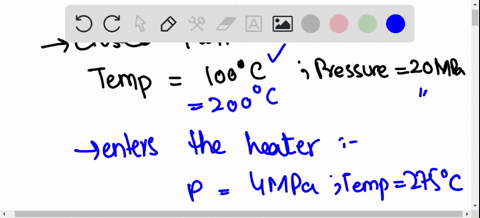 Temp = 100°C ; Pressure = 20MPa
= 200°C "
→ enters the heater :-
P = 4MPa ; Temp = 275°C